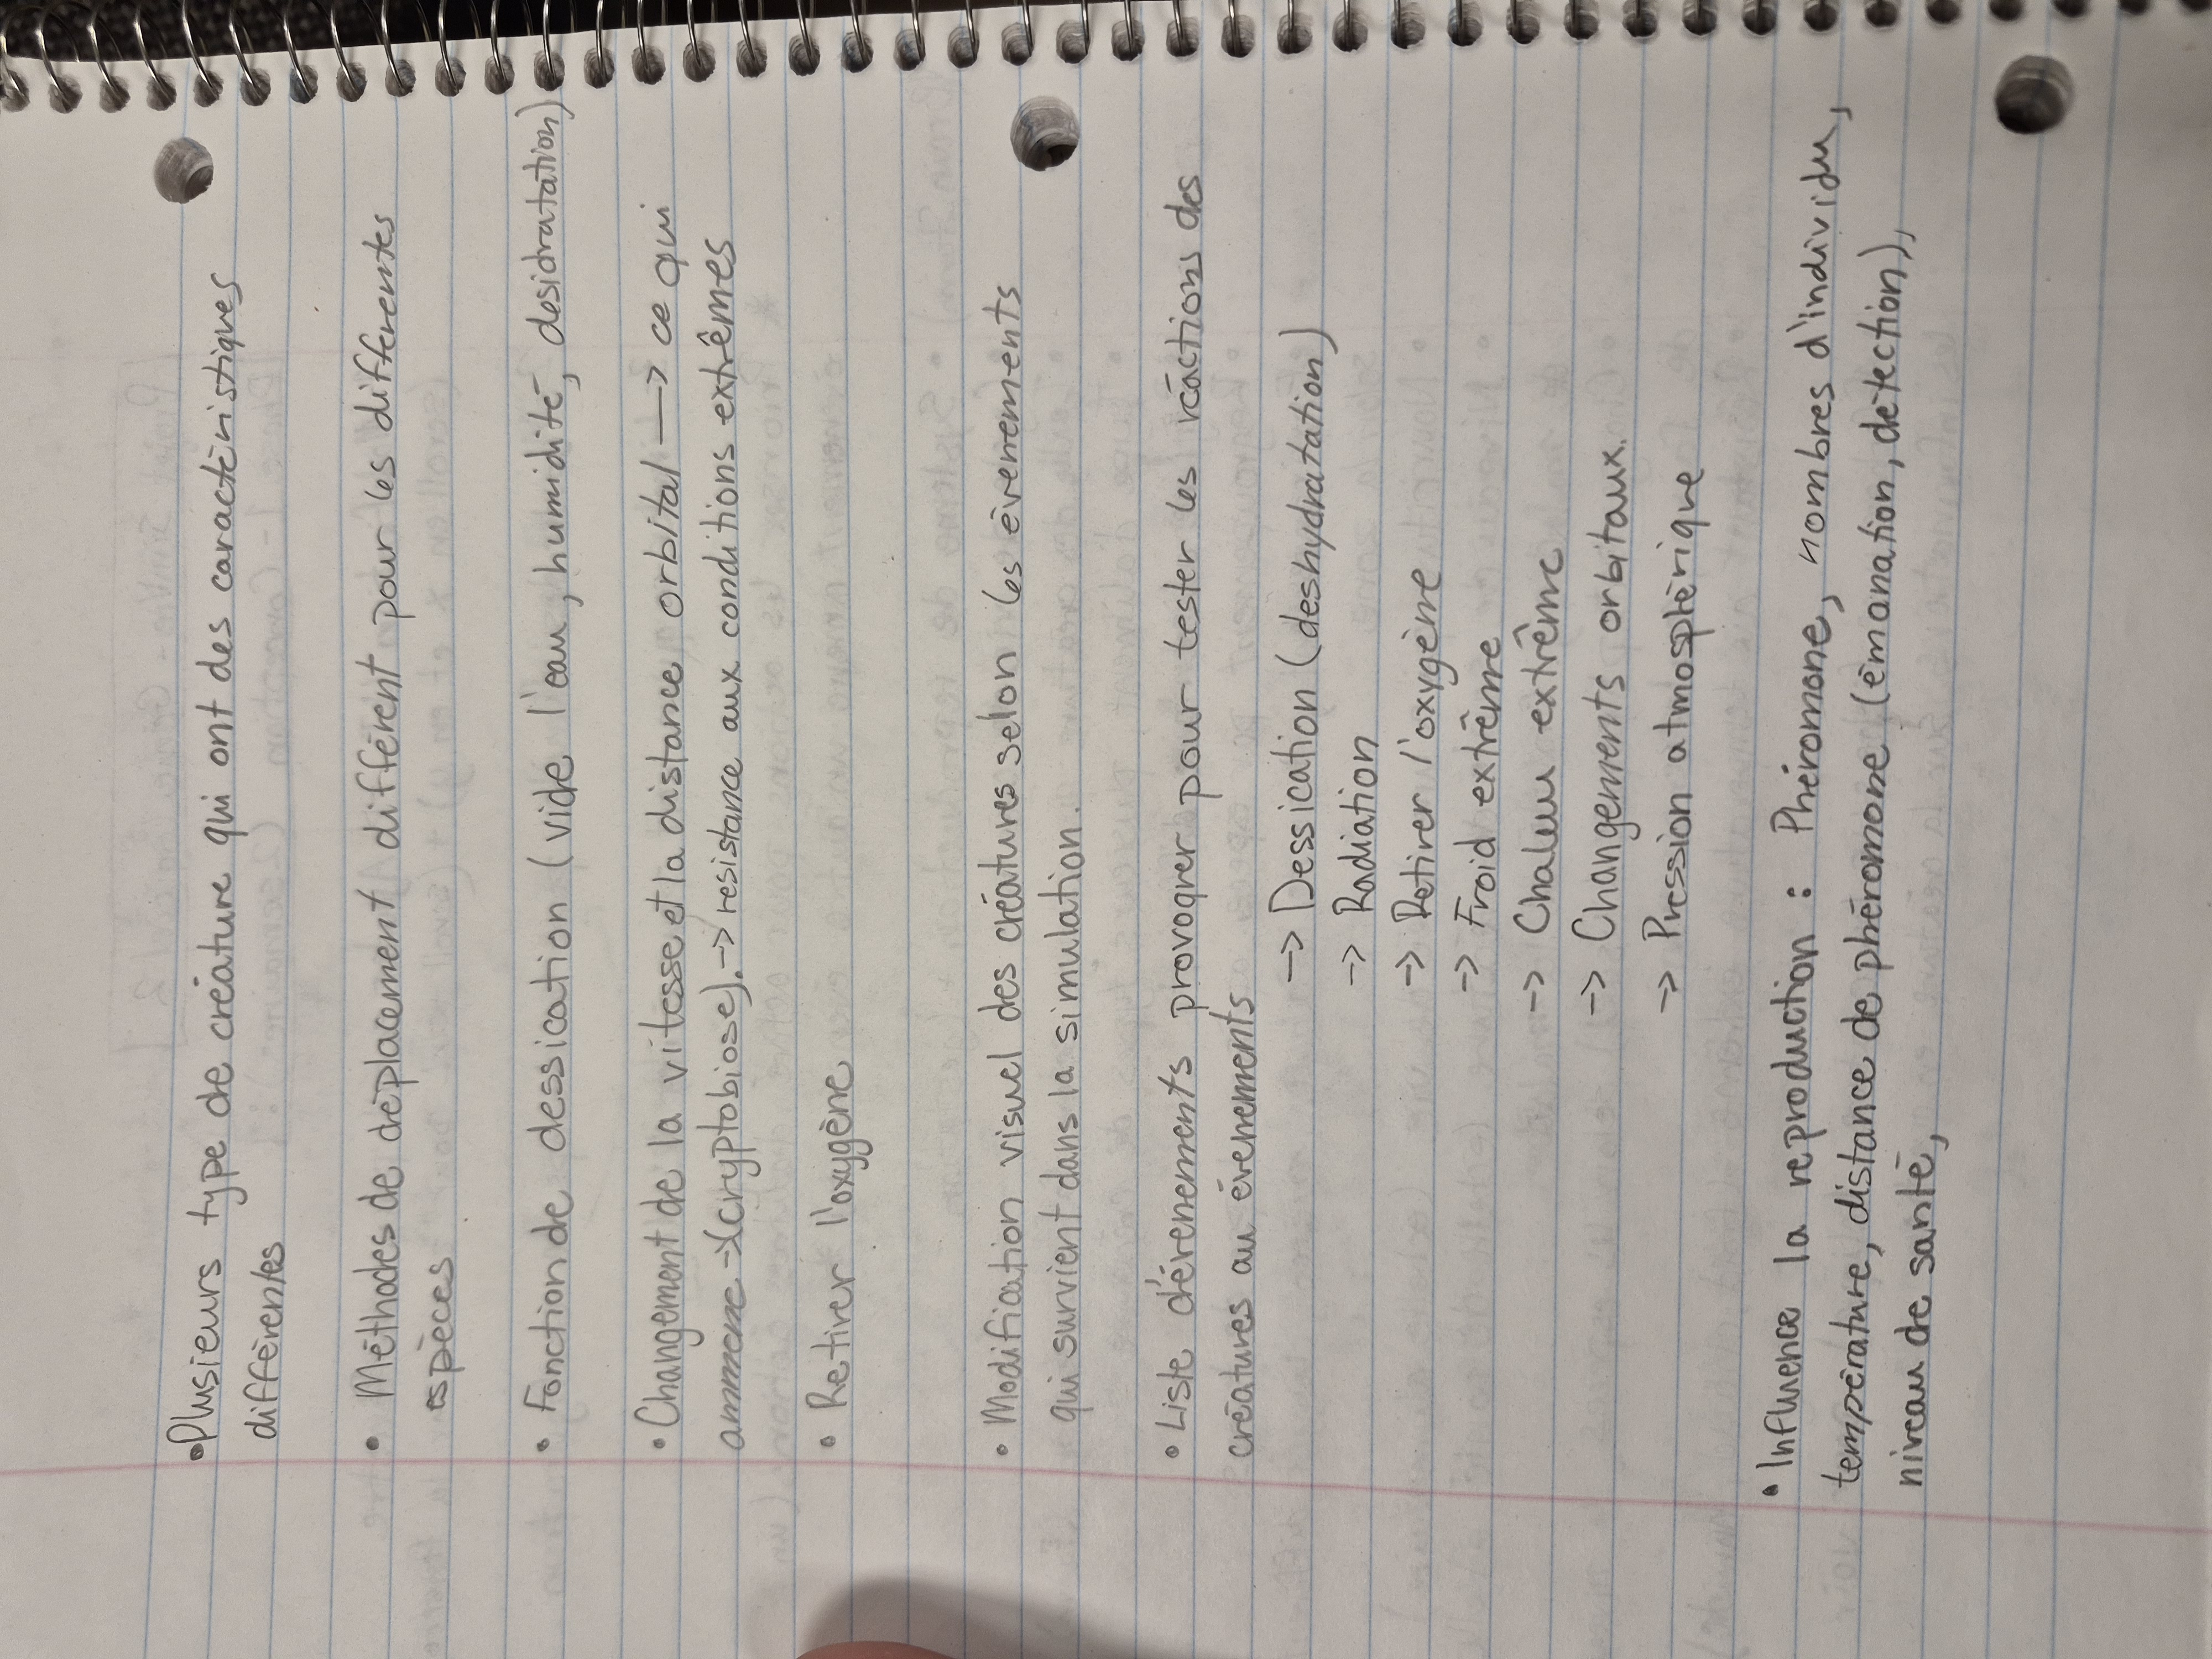 •Plusieurs type de créature qui ont des caractéristiques
différentes
• Méthodes de déplacement différent pour les différentes
espèces
• Fonction de dessication (vide l'eau, humidité, desidratation)
• Changement de la vitesse et la distance orbital —> ce qui
ammene ->(cryptobiose). -> resistance aux conditions extrêmes
• Retirer l'oxygène
• Modification visuel des créatures selon les évenements
qui survient dans la simulation.
• Liste d'évenements provoquer pour tester les réactions des
créatures au évenements
-> Dessication (deshydratation)
-> Radiation
-> Retirer l'oxygène
-> Froid extrême
-> Chaleur extrême
-> Changements orbitaux.
-> Pression atmosphérique
• Influence la reproduction : Phéromone, nombres d'individu,
température, distance de phéromone (émanation, détection),
niveau de santé,